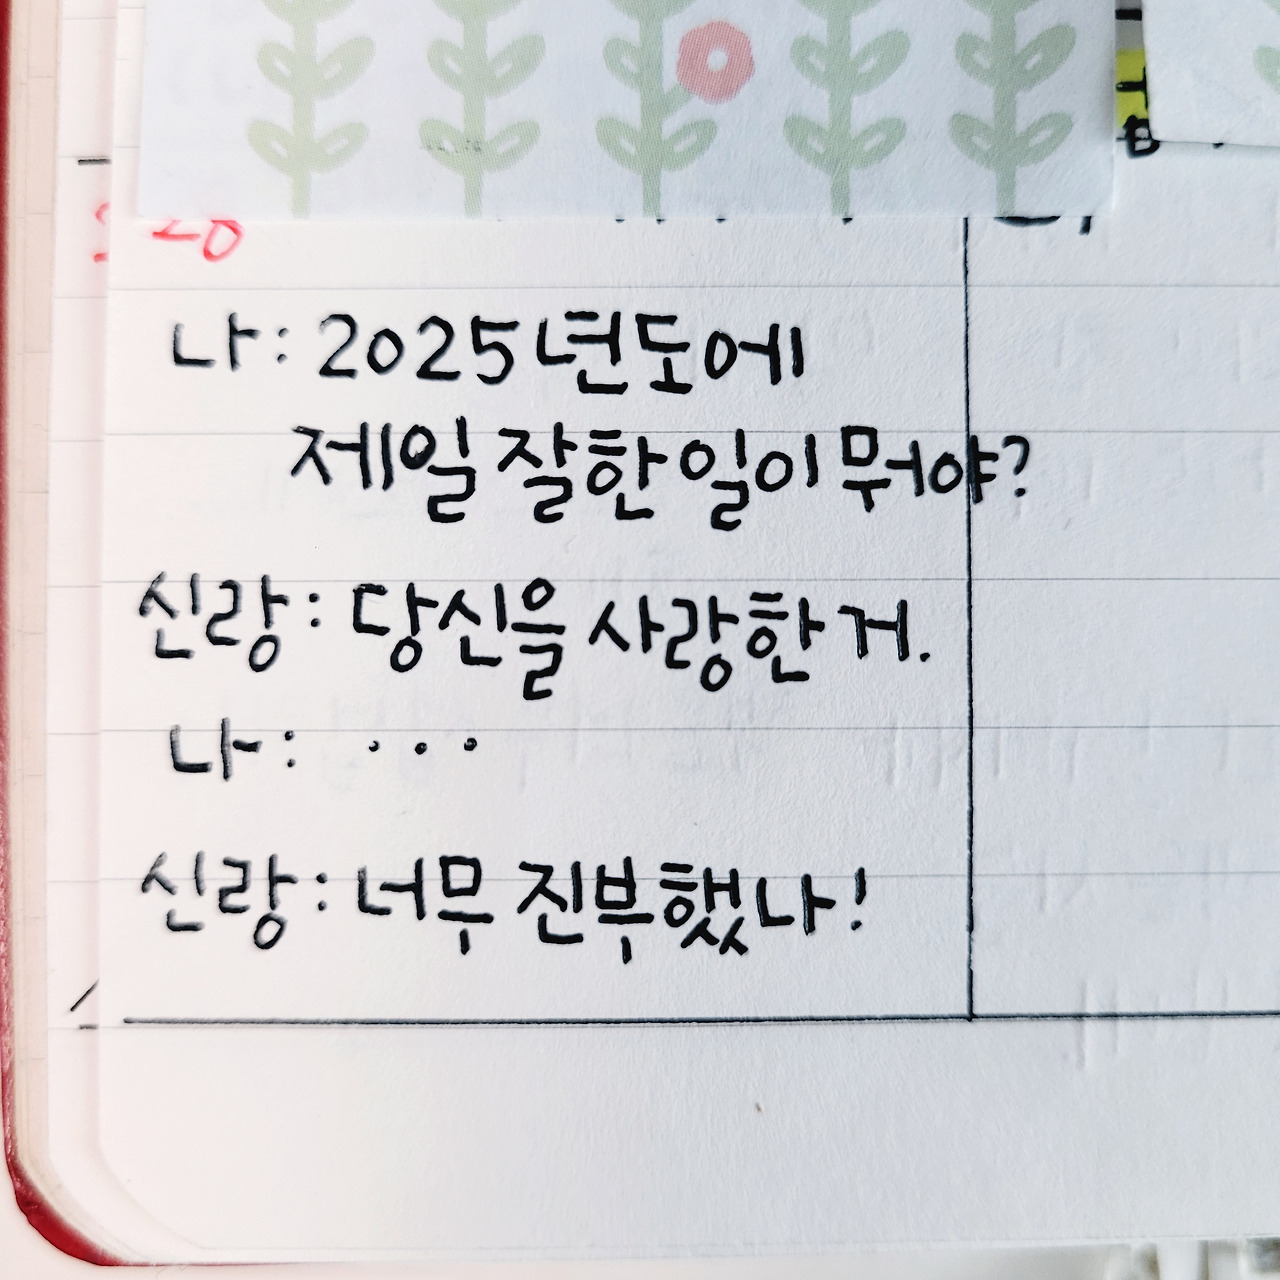 나: 2025년도에
제일 잘한 일이 뭐야?
신랑: 당신을 사랑한 거.
나: ...
신랑: 너무 진부했나!